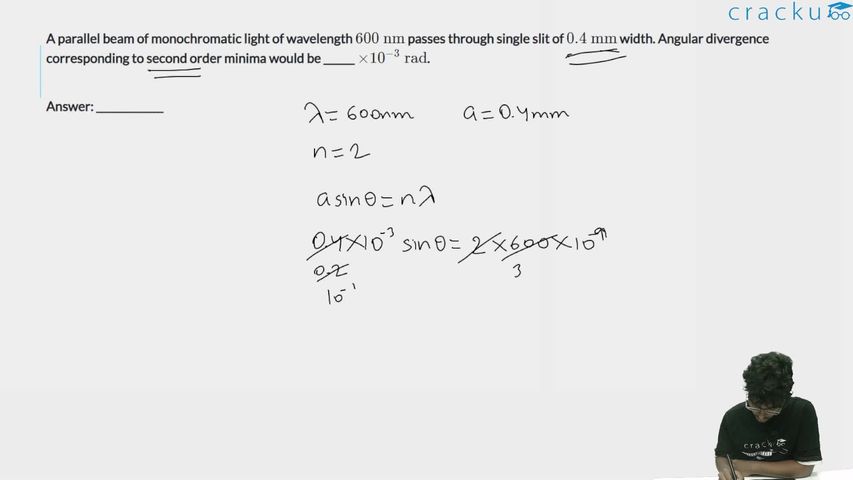 cracku
A parallel beam of monochromatic light of wavelength 600 nm passes through single slit of 0.4 mm width. Angular divergence
corresponding to second order minima would be ____ ×10⁻³ rad.
Answer: __________
λ = 600nm a = 0.4mm
n = 2
a sinθ = nλ
0.4×10⁻³ sinθ = 2×600×10⁻⁹
0.2 3
10⁻¹
cracku